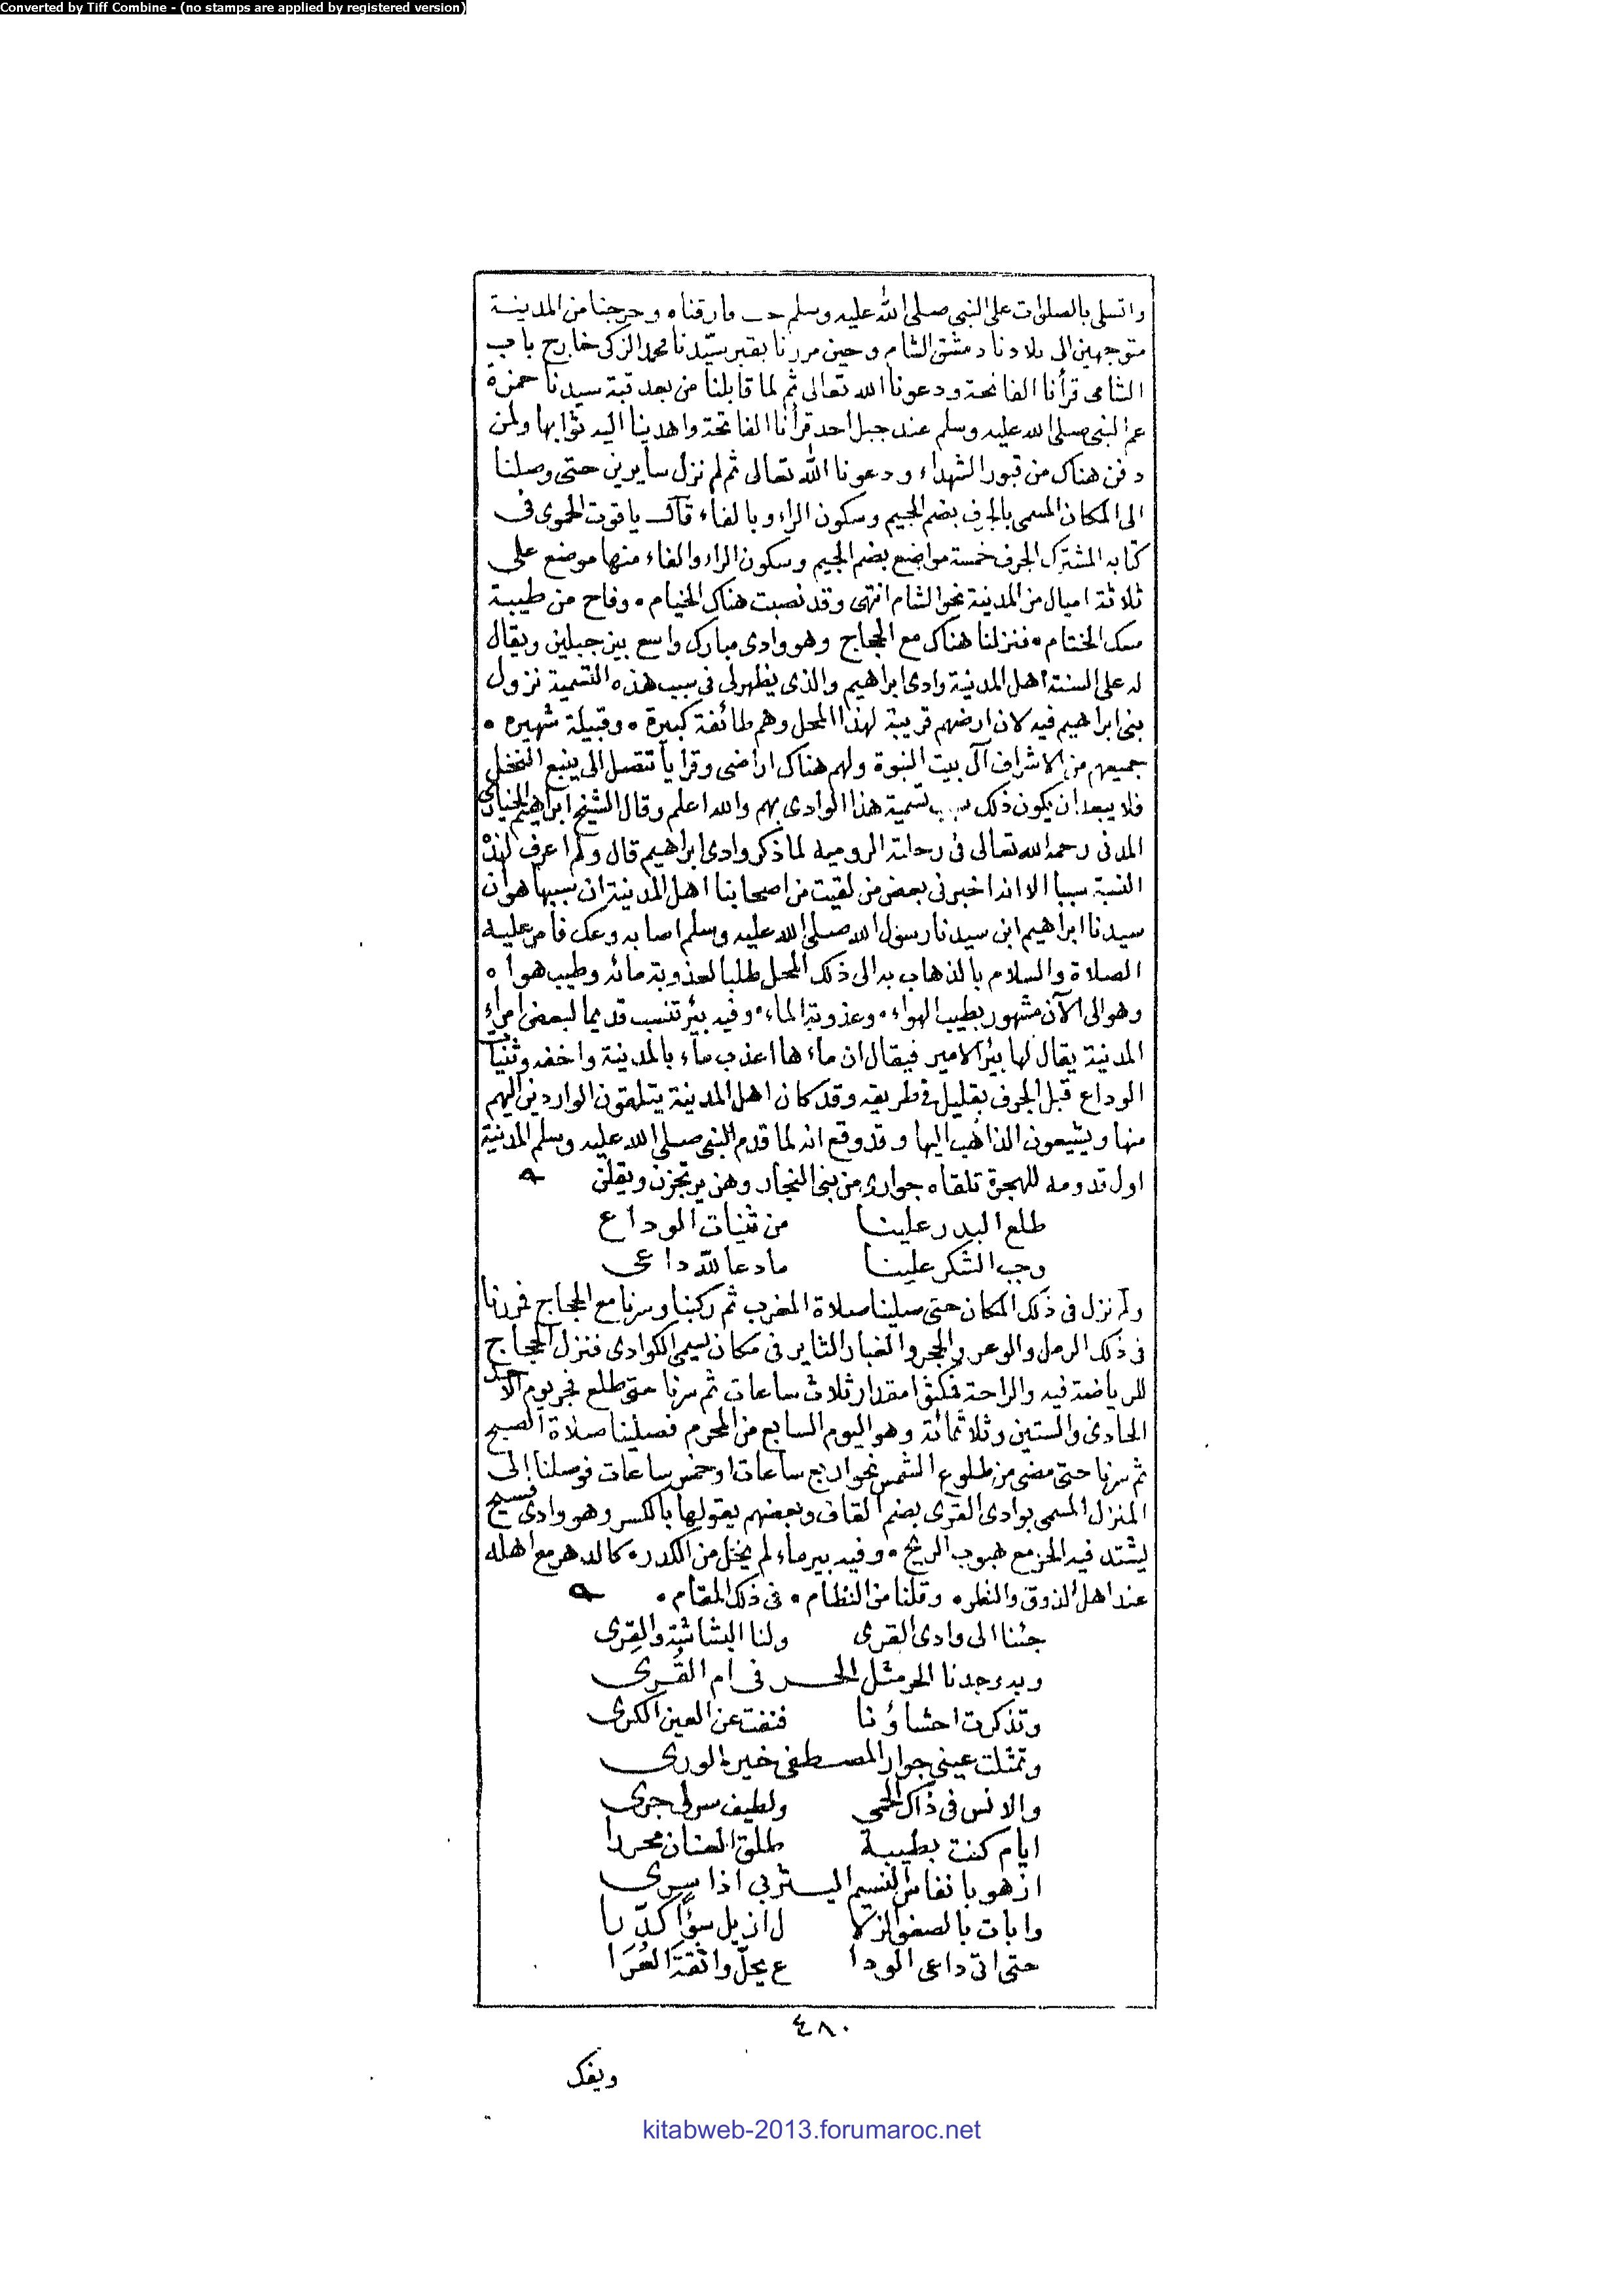 Converted by Tiff Combine - (no stamps are applied by registered version)
واتسلى بالصلوات على النبي صلى الله عليه وسلم فارقناه وخرجنا من المدينة
متوجهين الى بلادنا دمشق الشام وحين مررنا بقبر سيّدنا محمد الزكى خارج باب
الشامى قرأنا الفاتحة ودعونا الله تعالى ثم لما قابلنا من بعد قبة سيدنا حمزة
عم النبي صلى الله عليه وسلم عند جبل احد قرأنا الفاتحة واهدينا اليه ثوابها ولمن
دفن هناك من قبور الشهداء ودعونا الله تعالى ثم لم نزل سايرين حتى وصلنا
الى المكان المسمى بالجرف بضم الجيم وسكون الراء وبالفاء قال ياقوت الحموى فى
كتابه المشترك الجرف خمسة مواضع بضم الجيم وسكون الراء والفاء منها موضع على
ثلاثة اميال من المدينة نحو الشام انتهى وقد نصبت هناك الخيام • وفاح من طيبة
مسك الختام • فنزلنا هناك مع الحجاج وهو وادى مبارك واسع بين جبلين ويقال
له على السنة اهل المدينة وادى ابراهيم والذى يظهر لى فى سبب هذه التسمية نزول
بنى ابراهيم فيه لان ارضهم قريبة لهذا المحل وهم طائفة كبيرة • وقبيلة شهيرة •
جميعهم من الاشراف آل بيت النبوة ولهم هناك اراضى وقرايا تتصل الى ينبع النخل
فلا يبعد ان يكون ذلك سبب تسمية هذا الوادى بهم والله اعلم وقال الشيخ ابراهيم الخيارى
المدنى رحمه الله تعالى فى رحلته الروميه لما ذكر وادى ابراهيم قال ولم اعرف لهذه
النسبة سببا الا انه اخبرنى بعض من لقيت من اصحابنا اهل المدينة ان سببها هو ان
سيدنا ابراهيم ابن سيدنا رسول الله صلى الله عليه وسلم اصابه وعك فامر عليه
الصلاة والسلام بالذهاب به الى ذلك المحل طلبا لعذوبة مائه وطيب هواه
وهو الى الآن مشهور بطيب الهواء • وعذوبة الماء • وفيه بئر تنسب قديما لبعض امراء
المدينة يقال لها بئر الامير فيقال ان ماءها اعذب ماء بالمدينة واخفه وثنيات
الوداع قبل الجرف بقليل فى طريقه وقد كان اهل المدينة يتلقون الواردين اليهم
منها ويشيعون الذاهب اليها وقد وقع انه لما قدم النبي صلى الله عليه وسلم المدينة
اول قدومه للهجرة تلقاه جوارى من بنى النجار وهن يرتجزن ويقلن
طلع البدر علينا من ثنيات الوداع
وجب الشكر علينا ما دعا لله داعى
ولم نزل فى ذلك المكان حتى صلينا صلاة المغرب ثم ركبنا وسرنا مع الحجاج فمررنا
فى ذلك الرمل والوعر والحجر والغبار الثاير فى مكان يسمى الكوادى فنزل الحجاج
للرياضة فيه والراحة فمكثوا مقدار ثلاث ساعات ثم سرنا حتى طلع فجر يوم الاحد
الحادى والستين وثلاثمائة وهو اليوم السابع من المحرم فصلينا صلاة الصبح
ثم سرنا حتى مضى من طلوع الشمس نحو اربع ساعات او خمس ساعات فوصلنا الى
المنزل المسمى بوادى القرى بضم القاف وبعضهم يقولها بالكسر وهو وادى فسيح
يشتد فيه الحر مع هبوب الريح • وفيه بير ماء لم يخل من الكدر • كالدهر مع اهله
عند اهل الذوق والنظر • وقلنا من النظام • فى ذلك المقام •
جئنا الى وادى القرى ولنا البشاشة والقِرى
وبه وجدنا الحر مثل الحــر فى ام القُرى
وتذكرت احشاؤنا فنفت عن العين الكرى
وتمثلت عينى جوار المصطفى خير الورى
والانس فى ذاك الحمى ولطيف سر لى جرى
ايام كنت بطيبة طلق العنان محررا
ازهو بانفاس النسيم اليثربى اذا سرى
وابات بالصفو الزلا ل ازيل سؤاً كدّرا
حتى اتى داعى الودا ع يحلّ واثقة العُرَا
٤٨٠
ويفك
kitabweb-2013.forumaroc.net